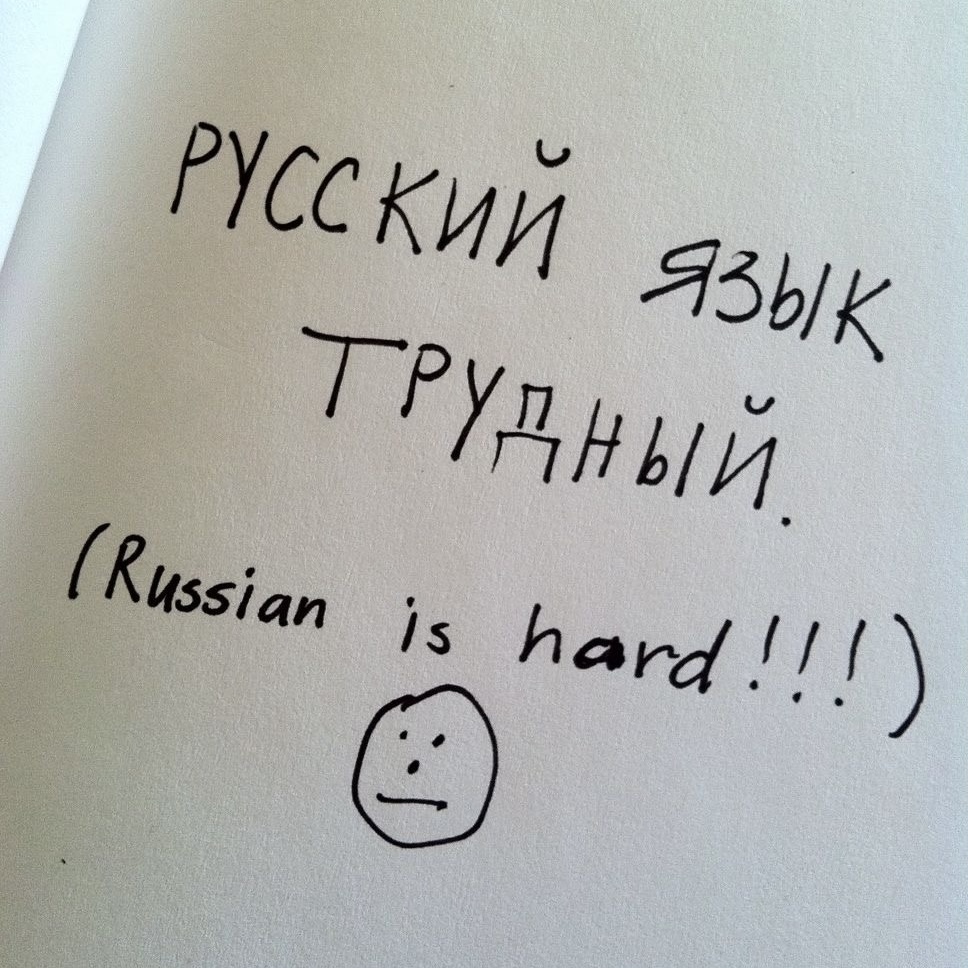 РУССКИЙ ЯЗЫК
ТРУДНЫЙ.
(Russian is hard!!!)